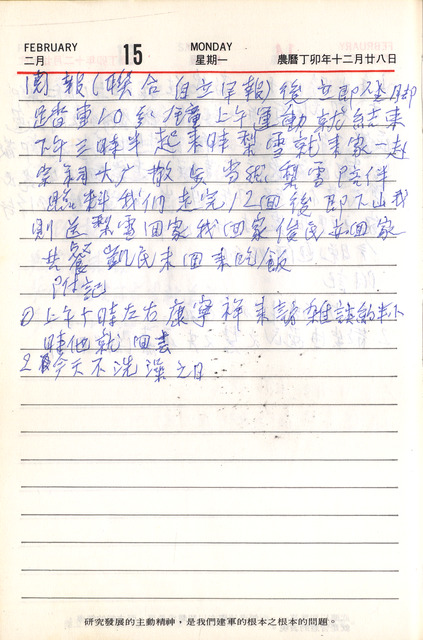 FEBRUARY 15 MONDAY
二月 星期一 農曆丁卯年十二月廿八日
閱報(聯合 自立早報)後 立即登腳
踏車10
上午運動就結束
下午三時半起來時梨雪就來家一起
散步 當然梨雪陪伴
我們走完12回後 即下山我
則送梨雪回家我回家俊民安回家
共餐 凱民未回來吃飯
附記
① 上午十時左右康寧祥來訪雜談約半小
時他就回去
2 今天不洗澡之日
研究發展的主動精神，是我們建軍的根本之根本的問題。